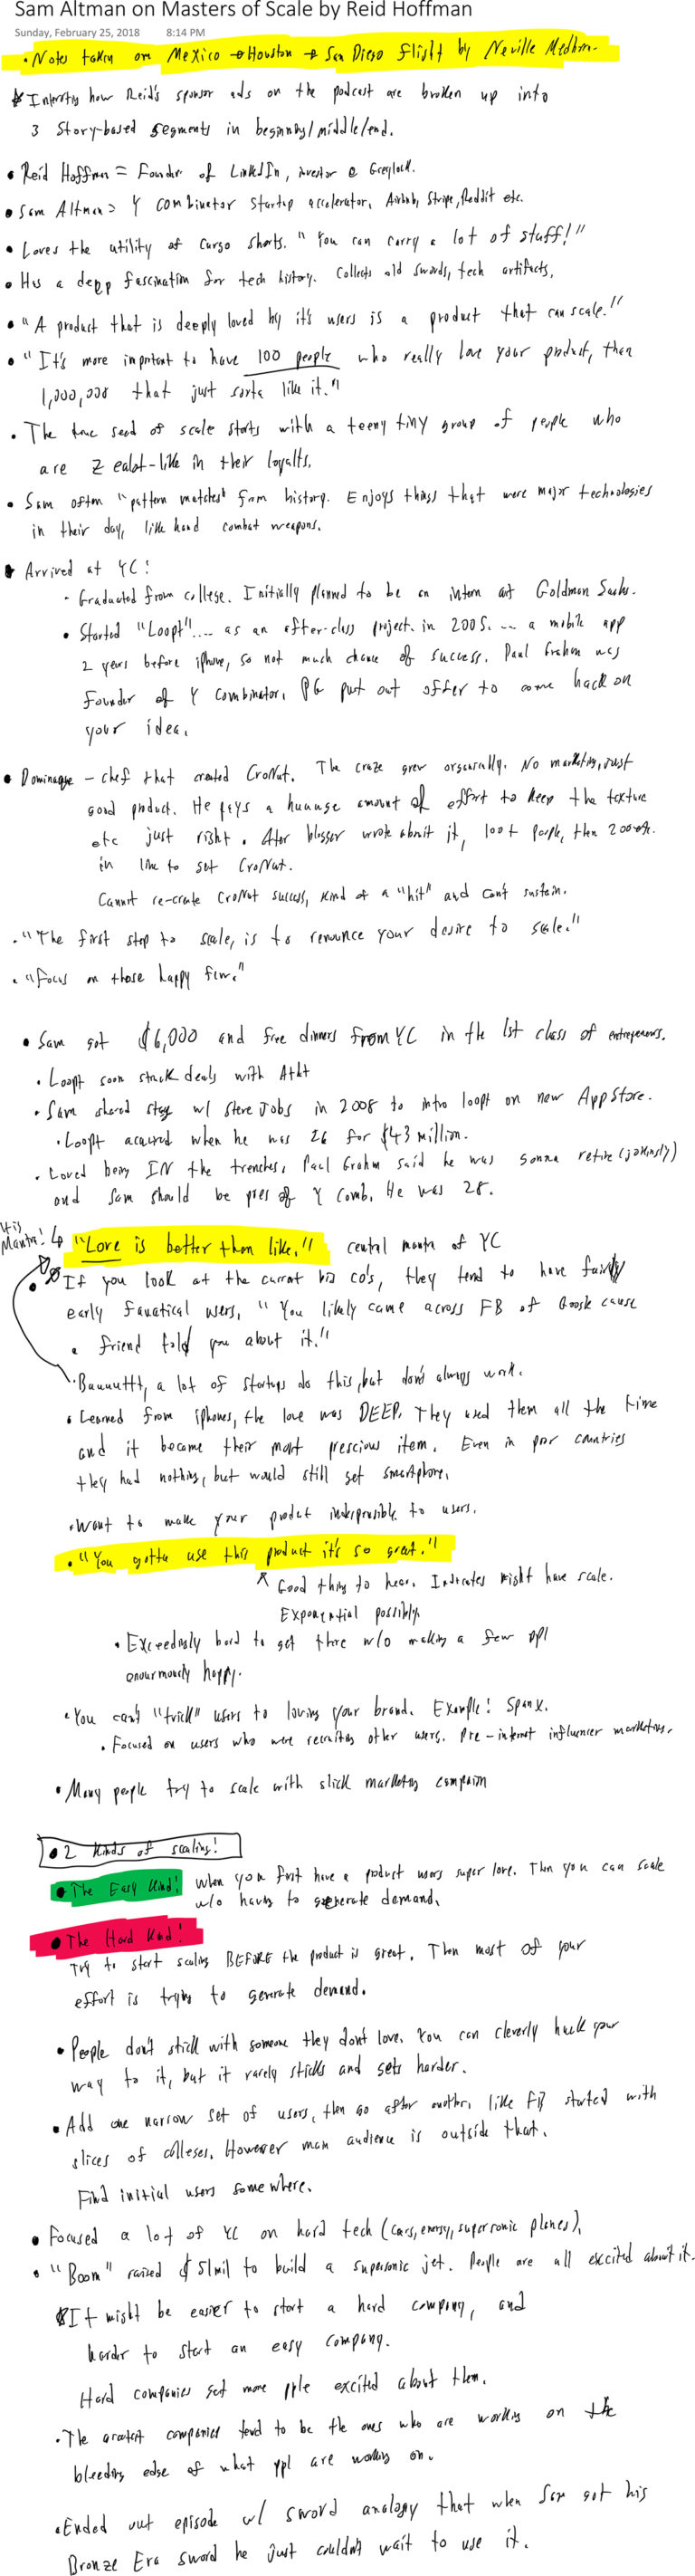 Sam Altman on Masters of Scale by Reid Hoffman
Sunday, February 25, 2018 8:14 PM
• Notes taken on Mexico → Houston → San Diego flight by Neville Medhora.
* Interesting how Reid's sponsor ads on the podcast are broken up into
3 story-based segments in beginning/middle/end.
• Reid Hoffman = Founder of LinkedIn, investor @ Greylock.
• Sam Altman = Y combinator startup accelerator. Airbnb, Stripe, Reddit etc.
• Loves the utility of cargo shorts. "You can carry a lot of stuff!"
• Has a deep fascination for tech history. Collects old swords, tech artifacts.
• "A product that is deeply loved by it's users is a product that can scale."
• "It's more important to have 100 people who really love your product, than
1,000,000 that just sorta like it."
• The true seed of scale starts with a teeny tiny group of people who
are zealot-like in their loyalty.
• Sam often "pattern matches" from history. Enjoys things that were major technologies
in their day, like hand combat weapons.
• Arrived at YC:
- Graduated from college. Initially planned to be an intern at Goldman Sachs.
• Started "Loopt".... as an after-class project. in 2005. ... a mobile app
2 years before iphone, so not much chance of success. Paul Graham was
founder of Y Combinator. PG put out offer to come hack on
your idea.
• Dominaque - chef that created CroNut. The craze grew organically. No marketing, just
good product. He pays a huuuge amount of effort to keep the texture
etc just right. After blogger wrote about it, 100+ people, then 200+
in line to get CroNut.
Cannot re-create CroNut success, kind of a "hit" and can't sustain.
• "The first step to scale, is to renounce your desire to scale."
• "Focus on those happy few."
• Sam got $6,000 and free dinners from YC in the 1st class of entrepreneurs.
• Loopt soon struck deals with At&t
• Sam shared stage w/ Steve Jobs in 2008 to intro loopt on new App Store.
• Loopt acquired when he was 26 for $43 million.
• Loved being IN the trenches. Paul Graham said he was gonna retire (jokingly)
and Sam should be pres of Y Comb. He was 28.
His Mantra! ↳ "Love is better than like." central mantra of YC
• If you look at the current big co's, they tend to have fairly
early fanatical users, "You likely came across FB of Google cause
a friend told you about it."
• Buuuuttt, a lot of startups do this, but don't always work.
• Learned from iphones, the love was DEEP. They used them all the time
and it became their most prescious item. Even in poor countries
they had nothing, but would still get smartphone.
• Want to make your product indispensible to users.
• "You gotta use this product it's so great."
^ Good thing to hear. Indicates might have scale.
Exponential possibly.
• Exceedingly hard to get there w/o making a few ppl
enourmously happy.
• You can't "trick" users to loving your brand. Example: Spanx.
• Focused on users who were recruiting other users. Pre-internet influencer marketing.
• Many people try to scale with slick marketing campaign
• 2 kinds of scaling!
• The Easy Kind! When you first have a product users super love. Then you can scale
w/o having to generate demand.
• The Hard Kind!
Try to start scaling BEFORE the product is great. Then most of your
effort is trying to generate demand.
• People don't stick with someone they don't love. You can cleverly hack your
way to it, but it rarely sticks and gets harder.
• Add one narrow set of users, then go after another, like FB started with
slices of colleges. However main audience is outside that.
Find initial users somewhere.
• Focused a lot of YC on hard tech (cars, energy, supersonic planes).
• "Boom" raised $51mil to build a supersonic jet. People are all excited about it.
* It might be easier to start a hard company, and
harder to start an easy company.
Hard companies get more pple excited about them.
• The greatest companies tend to be the ones who are working on the
bleeding edge of what ppl are working on.
• Ended out episode w/ sword analogy that when Sam got his
Bronze Era sword he just couldn't wait to use it.